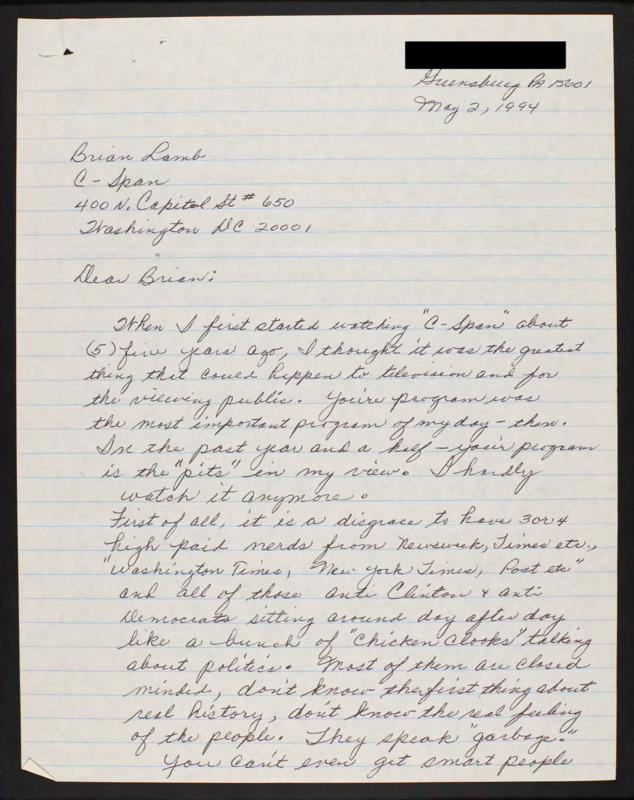 Greensburg PA 15601
May 2, 1994
Brian Lamb
C-Span
400 N. Capitol St # 650
Washington DC 20001
Dear Brian:
When I first started watching "C-Span" about
(5) five years ago, I thought it was the greatest
thing that could happen to television and for
the viewing public. You're program was
the most important program of my day - then.
In the past year and a half - your program
is the "pits" in my view. I hardly
watch it anymore.
First of all, it is a disgrace to have 3 or 4
high paid nerds from Newsweek, Times etc.,
"Washington Times, New York Times, Post etc"
and all of those anti Clinton & anti
Democrats sitting around day after day
like a bunch of "Chicken Clooks" talking
about politics. Most of them are closed
minded, don't know the first thing about
real history, don't know the real feeling
of the people. They speak "garbage."
You can't even get smart people